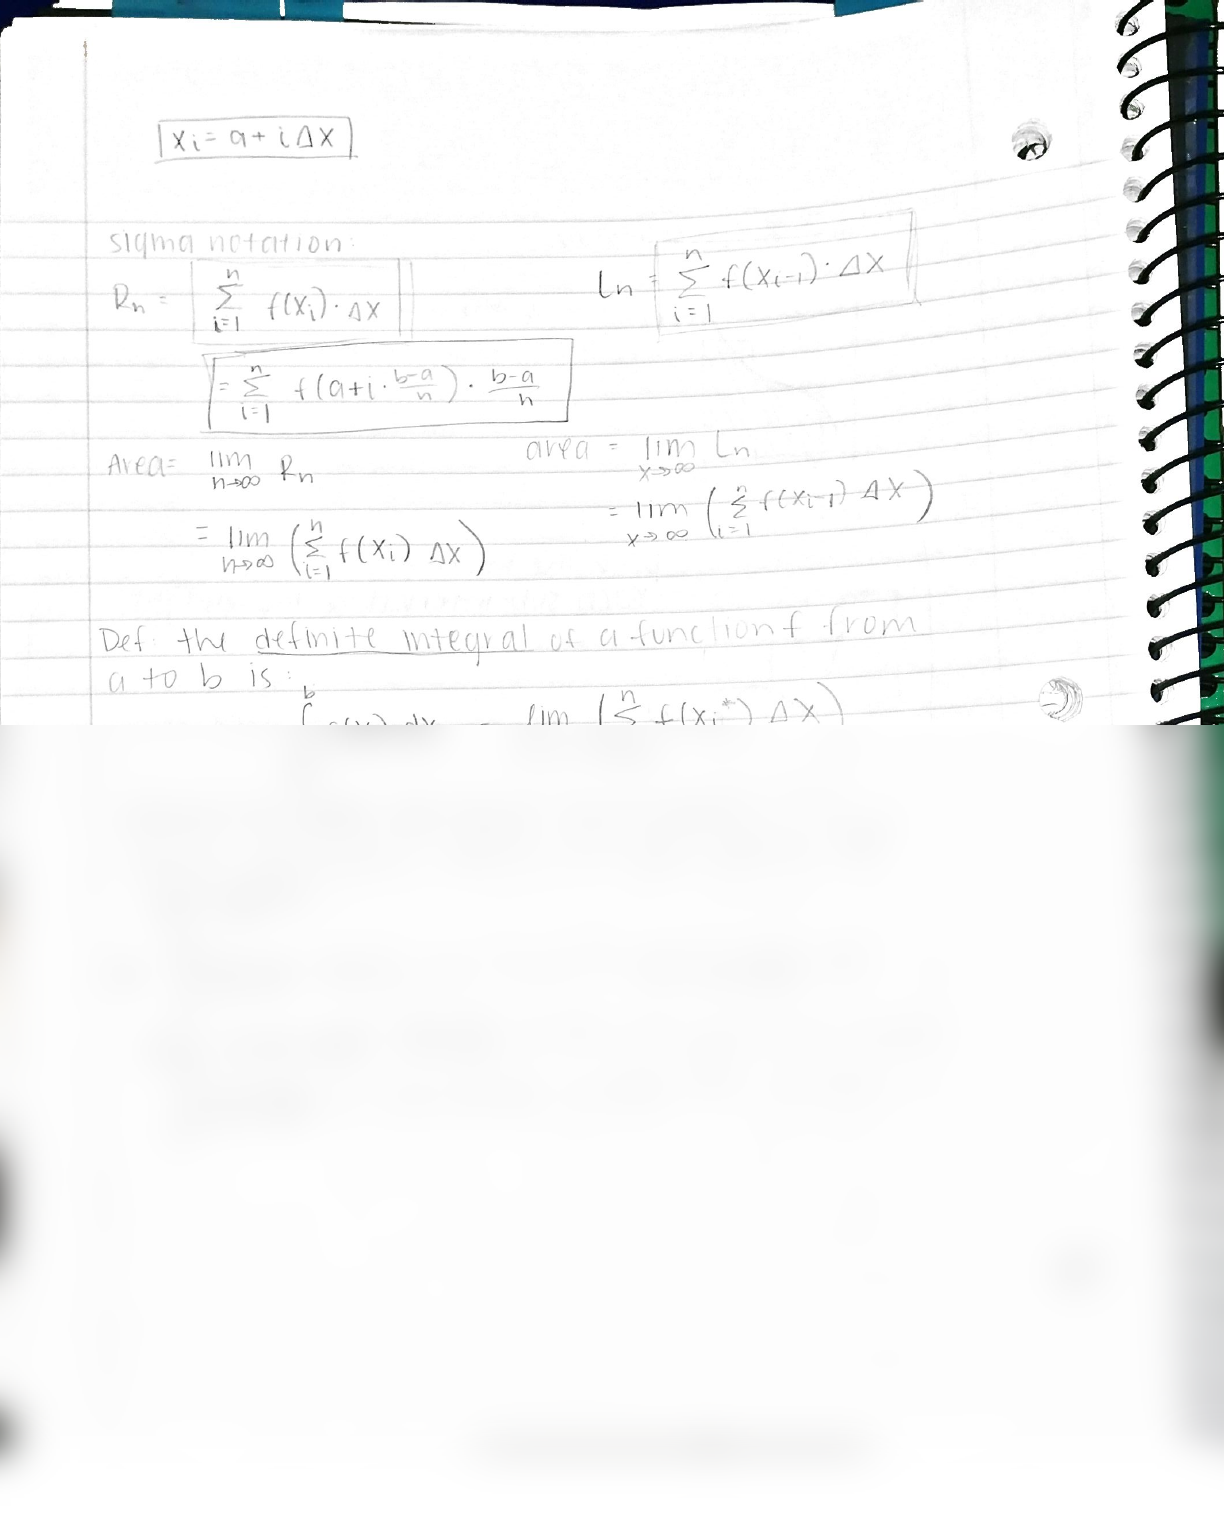 xi = a + i Δx
sigma notation:
Rn = n Σ i=1 f(xi) · Δx
Ln = n Σ i=1 f(xi-1) · Δx
= n Σ i=1 f(a+i · b-a/n) · b-a/n
Area = lim n→∞ Rn
area = lim x→∞ Ln
= lim n→∞ (n Σ i=1 f(xi) Δx)
= lim x→∞ (n Σ i=1 f(xi-1) Δx)
Def: the definite integral of a function f from
a to b is:
b ∫ dx = lim (n Σ f(xi*) Δx)